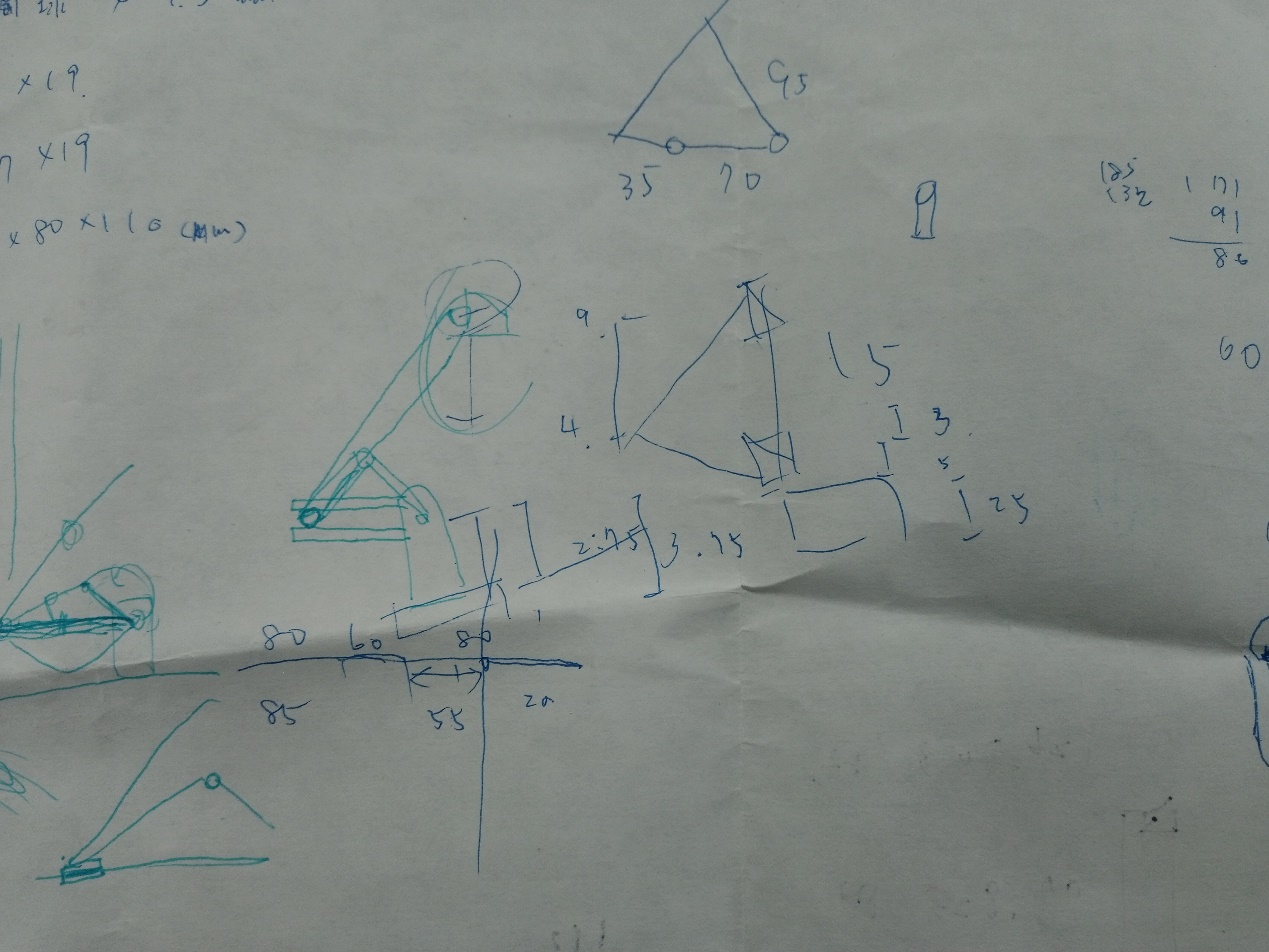 ×19.
×19
×80×110 (mm)
95
35 70
185
132
171
91
80
60
9.
4.
15
3.
5
25
2.75
3.75
80 60 80
85 55 20